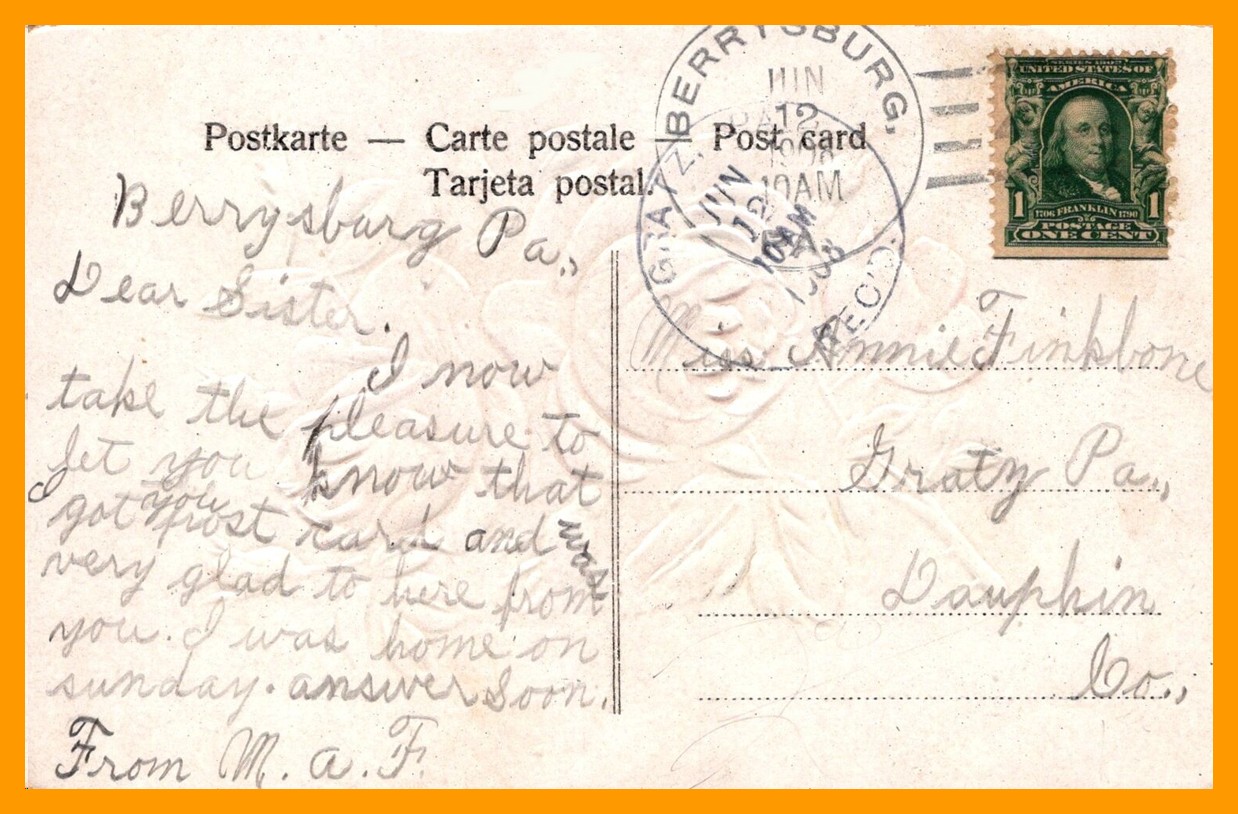 BERRYSBURG,
JUN
12
10AM
PA.
GRATZ,
JUN
12
10AM
1908
REC'D.
SERIES 1902
UNITED STATES OF
AMERICA
1 1706 FRANKLIN 1790 1
POSTAGE
ONE CENT
Postkarte — Carte postale — Post card
Tarjeta postal.
Berrysburg Pa.,
Dear Sister.
I now
take the pleasure to
let you know that
I got you post card and was
very glad to here from
you. I was home on
sunday. answer Soon.
From M. a. F.
Miss Annie Finkbone
Gratz Pa.,
Dauphin
Co.,